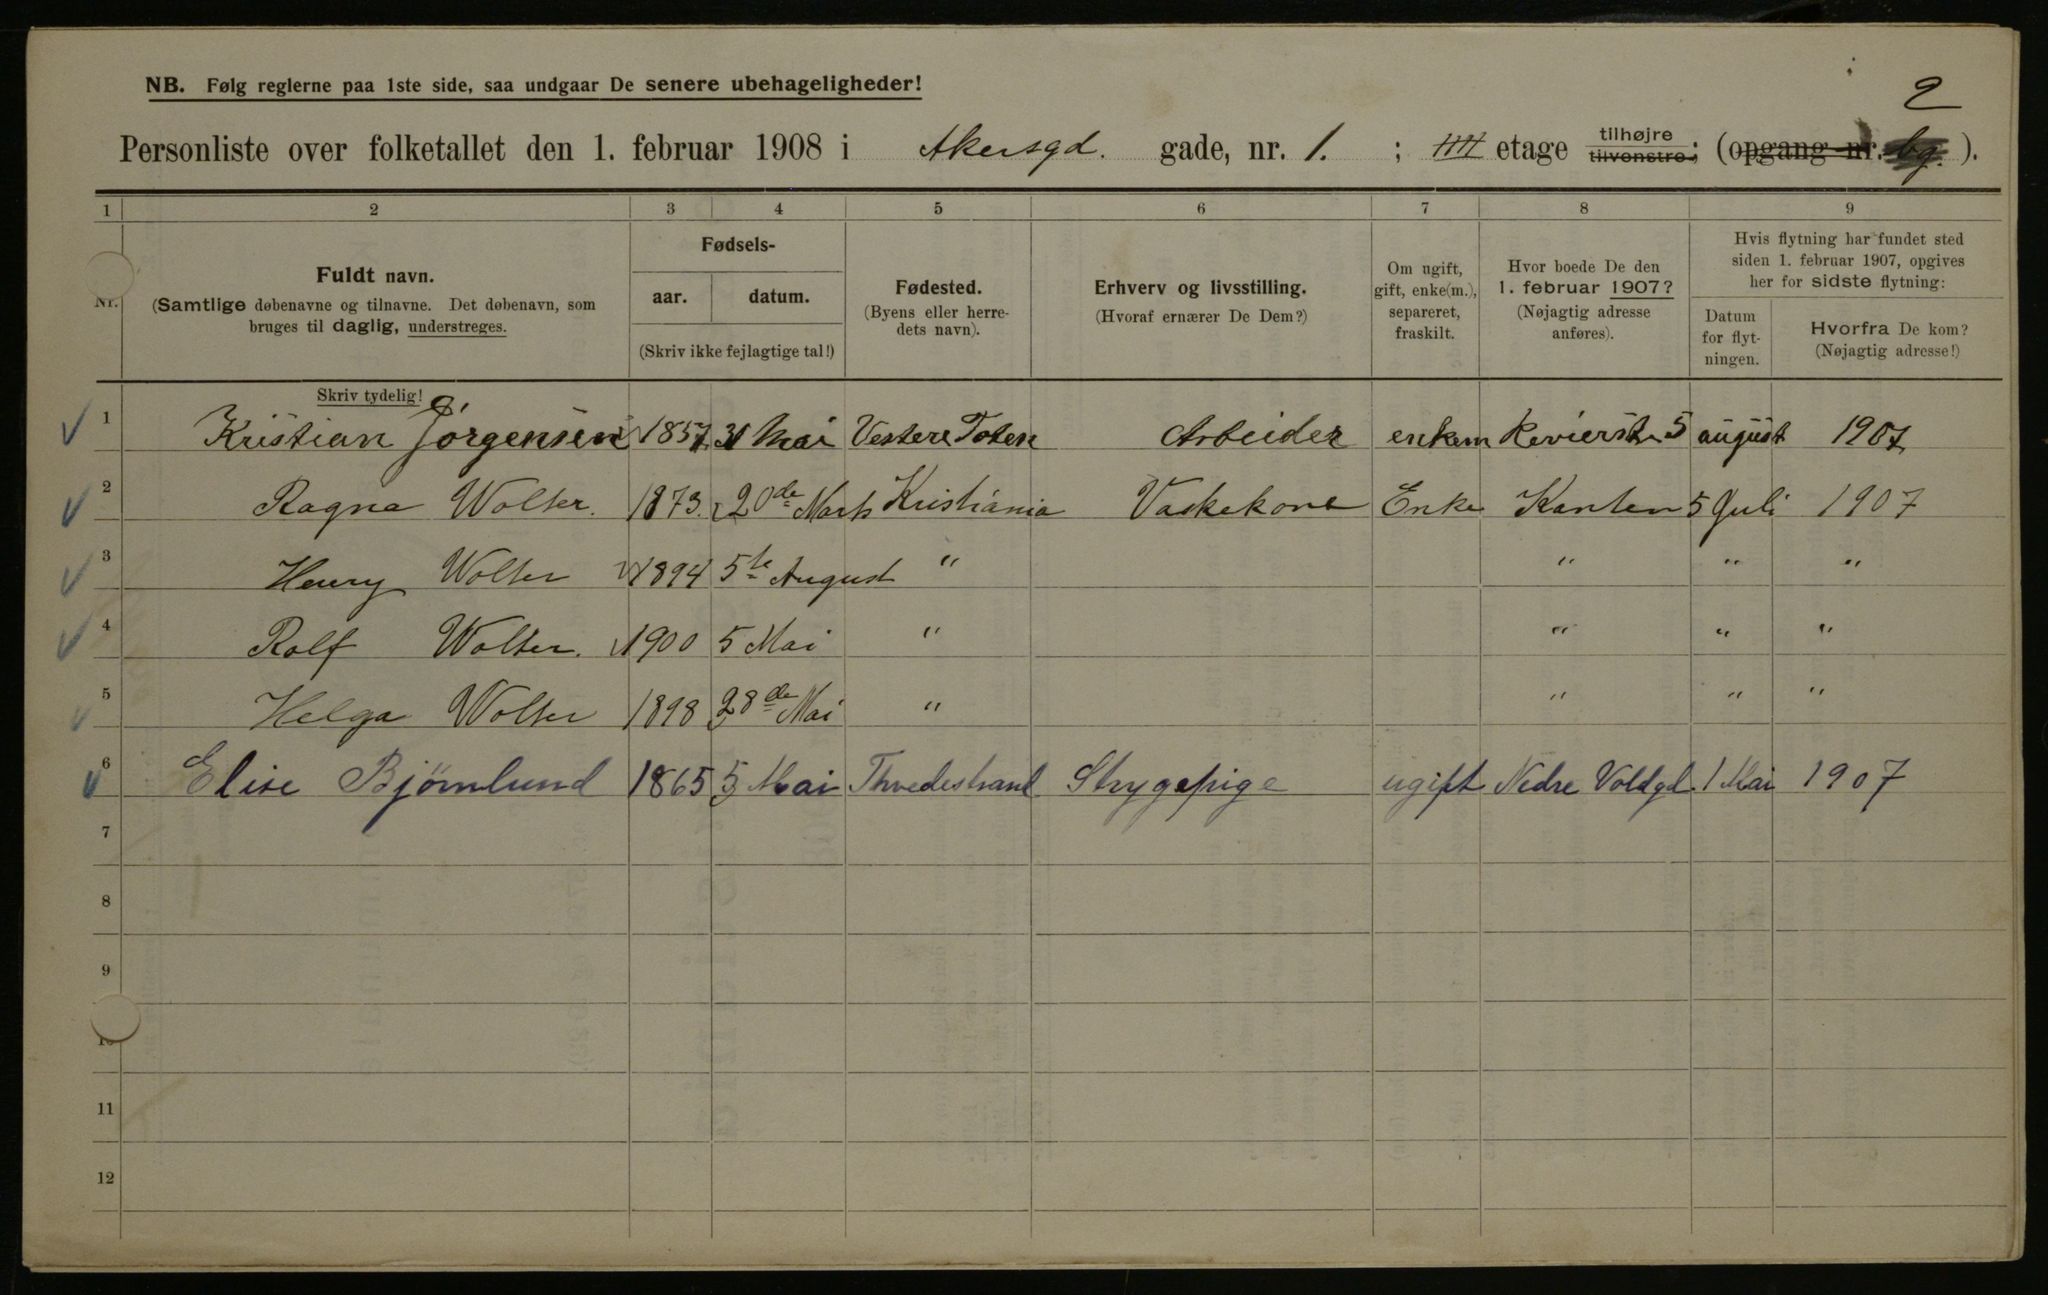 2
NB. Følg reglerne paa 1ste side, saa undgaar De senere ubehageligheder!
Personliste over folketallet den 1. februar 1908 i Akersgd. gade, nr. 1. ; IIII etage tilhøjre tilvenstre; (opgang nr. bg. ).
1 2 3 4 5 6 7 8 9
Nr.
Fuldt navn.
(Samtlige døbenavne og tilnavne. Det døbenavn, som
bruges til daglig, understreges.
Fødsels-
aar. datum.
(Skriv ikke fejlagtige tal!)
Fødested.
(Byens eller herre-
dets navn).
Erhverv og livsstilling.
(Hvoraf ernærer De Dem?)
Om ugift,
gift, enke(m.),
separeret,
fraskilt.
Hvor boede De den
1. februar 1907?
(Nøjagtig adresse
anføres).
Hvis flytning har fundet sted
siden 1. februar 1907, opgives
her for sidste flytning:
Datum
for flyt-
ningen.
Hvorfra De kom?
(Nøjagtig adresse!)
Skriv tydelig!
1 Kristian Jörgensen 1857 31 Mai Vestere Toten Arbeider enkem Revierst. 5 august 1907
2 Ragna Wolter. 1873. 20de Marts Kristiania Vaskekone Enke Kanten 5 Juli 1907
3 Henry Wolter 1894 5te August " " " "
4 Rolf Wolter. 1900 5 Mai " " " "
5 Helga Wolter 1898 28de Mai " " " "
6 Elise Bjørnlund 1865 5 Mai Thvedestrand Strygepige ugift Nedre Voldgd. 1 Mai 1907
7
8
9
10
11
12